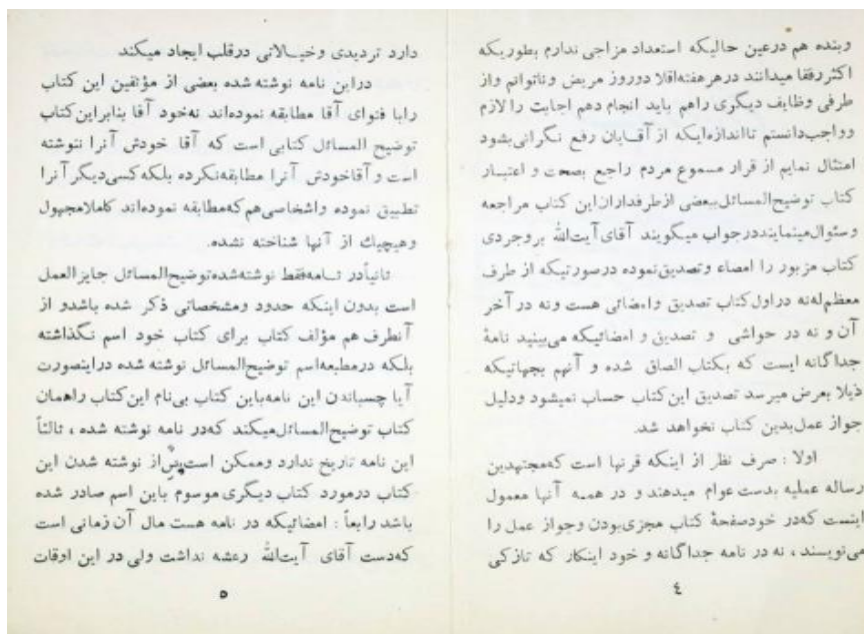 وبنده هم درعین حالیکه استعداد مزاجی ندارم بطوریکه
اکثررفقا میدانند درهرهفته‌اقلا دوروز مریض وناتوانم واز
طرفی وظایف دیگری راهم باید انجام دهم اجابت را لازم
وواجب‌دانستم تااندازه‌ایکه از آقایان رفع نگرانی‌بشود
امتثال نمایم از قرار مسموع مردم راجع بصحت و اعتبار
کتاب توضیح‌المسائل‌ببعضی ازطرفداران‌این کتاب مراجعه
وسئوال‌مینمایند‌درجواب میگویند آقای‌آیت‌الله بروجردی
کتاب مزبور را امضاء وتصدیق‌نموده درصورتیکه از طرف
معظم‌له‌نه دراول‌کتاب تصدیق وامضائی هست ونه در آخر
آن و نه در حواشی و تصدیق و امضائیکه می‌بینید نامهٔ
جداگانه ایست که بکتاب الصاق شده و آنهم بجهاتیکه
ذیلا بعرض میرسد تصدیق این‌کتاب حساب نمیشود ودلیل
جواز عمل‌بدین کتاب نخواهد شد.
اولا : صرف نظر از اینکه قرنها است که‌مجتهدین
رساله عملیه بدست عوام میدهند و در همه آنها معمول
اینست که‌در خودصفحهٔ کتاب مجزی‌بودن وجواز عمل را
می‌نویسند ، نه در نامه جداگانه و خود اینکار که تازکی
٤
دارد تردیدی وخیـالاتی درقلب ایجاد میکند
دراین نامه نوشته شده بعضی از مؤثقین این کتاب
رابا فتوای آقا مطابقه نموده‌اند نه‌خود آقا بنابراین‌کتاب
توضیح المسائل کتابی است که آقا خودش آنرا ننوشته
است و آقاخودش آنرا مطابقه‌نکرده بلکه‌کسی‌دیگر آنرا
تطبیق نموده واشخاصی‌هم‌که‌مطابقه نموده‌اند کاملامجهول
وهیچیك از آنها شناخته نشده.
ثانیاًدر نـامه‌فقط نوشته‌شده‌توضیح‌المسائل جایزالعمل
است بدون اینکه حدود ومشخصاتی ذکر شده باشدو از
آنطرف هم مؤلف کتاب برای کتاب خود اسم نگذاشته
بلکه درمطبعه‌اسم توضیح‌المسائل نوشته شده دراینصورت
آیا چسباندن این نامه‌باین کتاب بی‌نام این‌کتاب راهمان
کتاب توضیح‌المسائل‌میکند که‌در نامه نوشته شده ، ثالثاً
این نامه تاریخ ندارد وممکن است‌پس‌از نوشته شدن این
کتاب درمورد کتاب دیگری موسوم باین اسم صادر شده
باشد رابعاً : امضائیکه در نامه هست مال آن زمانی است
که‌دست آقای آیت‌الله رعشه نداشت ولی در این اوقات
٥